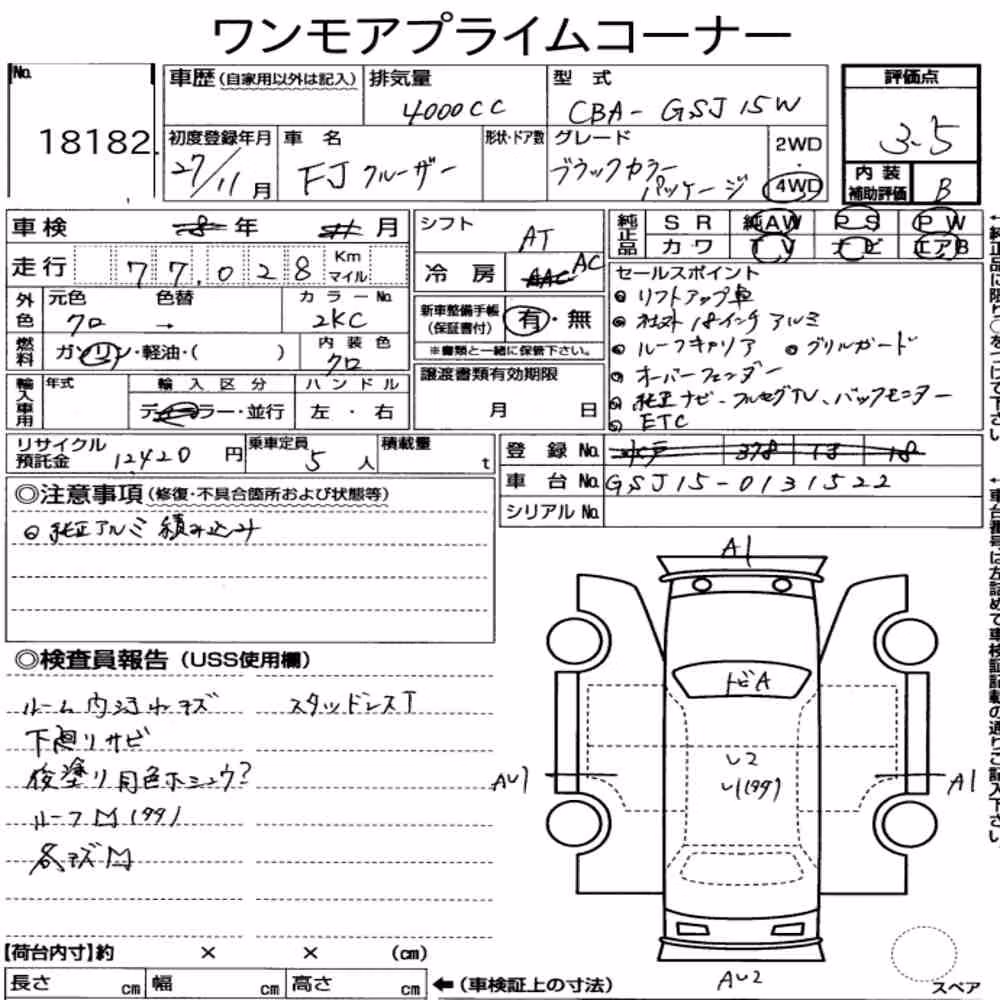 ワンモアプライムコーナー
No. 18182
車歴 (自家用以外は記入) 排気量 4000CC 型式 CBA-GSJ15W
初度登録年月 27/11月 車名 FJクルーザー 形状・ドア数 グレード ブラックカラーパッケージ 2WD・4WD
評価点 3.5
内装補助評価 B
車検 年 月
走行 77,028 Km マイル
外色 元色 クロ 色替 → カラーNo. 2KC
燃料 ガソリン・軽油・( ) 内装色 クロ
輸入車用 年式 輸入区分 ディーラー・並行 ハンドル 左・右
シフト AT
冷房 AAC AC
新車整備手帳(保証書付) 有・無
※書類と一緒に保管下さい。
譲渡書類有効期限 月 日
純正品 SR 純AW PS PW
カワ TV ナビ エアB
セールスポイント
リフトアップ車
社外18インチアルミ
ルーフキャリア グリルガード
オーバーフェンダー
純正ナビ、フルセグTV、バックモニター
ETC
リサイクル預託金 12,420円 乗車定員 5人 積載量 t
登録No. 水戸 378 18
車台No. GSJ15-0131522
シリアルNo.
◎注意事項 (修復・不具合箇所および状態等)
純正アルミ積み込み
◎検査員報告 (USS使用欄)
ルーム内 スタッドレスT
下廻りサビ
後塗り同色ホシュウ?
ルーフM
各キズM
A1
トビA
U2
AU1
A1
AU2
スペア
【荷台内寸】約 × × (cm)
長さ cm 幅 cm 高さ cm ←(車検証上の寸法)
←純正品に限り○をつけて下さい
←車台番号は左詰めで車検証記載の通りご記入下さい。